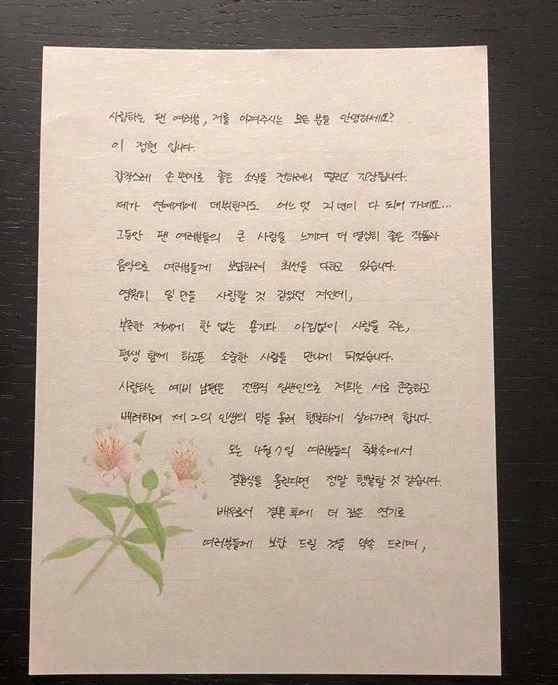 사랑하는 팬 여러분, 저를 아껴주시는 모든 분들 안녕하세요?
이 정현 입니다.
갑작스레 손 편지로 좋은 소식을 전하려니 떨리고 긴장됩니다.
제가 연예계에 데뷔한지도 어느 멋 21년이 다 되어 가네요...
그동안 팬 여러분들의 큰 사랑을 느끼며 더 열심히 좋은 작품과
음악으로 여러분들께 보답하려 최선을 다하고 있습니다.
영원히 일 만을 사랑할 것 같았던 저인데,
부족한 저에게 한 없는 용기와 아낌없이 사랑을 주는,
평생 함께 하고픈 소중한 사람을 만나게 되었습니다.
사랑하는 예비 남편은 전문직 일반인으로 저희는 서로 존중하고
배려하며 제 2의 인생의 막을 올려 행복하게 살아가려 합니다.
오는 4월 7일 여러분들의 축복속에서
결혼식을 올린다면 정말 행복할 것 같습니다.
배우로서 결혼 후에 더 깊은 연기로
여러분들께 보답 드릴 것을 약속 드리며,